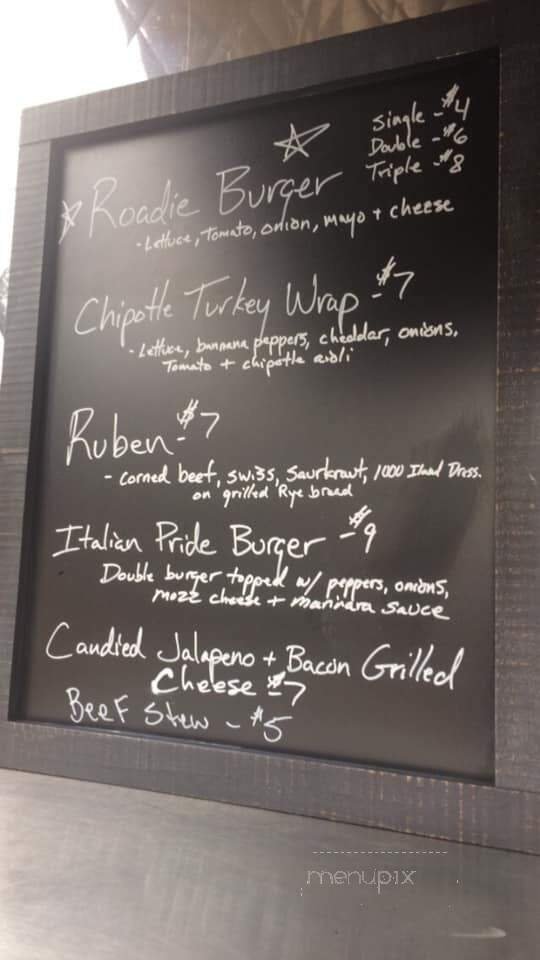 Single - $4
Double - $6
Triple - $8
Roadie Burger
- Lettuce, Tomato, onion, mayo + cheese
Chipotle Turkey Wrap - $7
- Lettuce, bannana peppers, cheddar, onions,
Tomato + chipotle aioli
Ruben - $7
- corned beef, swiss, saurkraut, 1000 Iland Dress.
on grilled Rye bread
Italian Pride Burger - $9
Double burger topped w/ peppers, onions,
mozz cheese + marinara sauce
Candied Jalapeno + Bacon Grilled
Cheese - $7
Beef Stew - $5
menupix